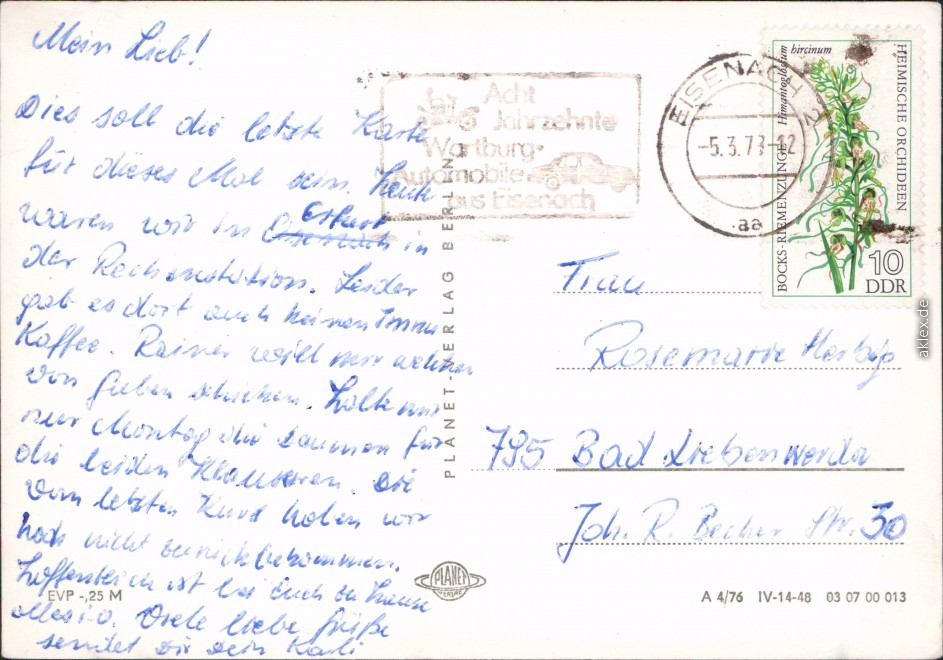 Mein Lieb!
Dies soll die letzte Karte
für dieses Mal sein. Heute
waren wir in Erfurt in
der Rechenstation. Leider
gab es dort auch keinen Imm
Kaffee. Rainer will mir welchen
von Guben schicken. Halte mir
nur Montag die Daumen für
die beiden Klausuren. Die
vom letzten Kurs haben wir
noch nicht zurückbekommen.
Hoffentlich ist bei Euch zu Hause
alles i.o. Viele liebe Grüße
sendet Dir Dein Karli
EVP -,25 M
PLANET-VERLAG BERLIN
PLANET
VERLAG
Acht
Jahrzehnte
Wartburg-
Automobile
aus Eisenach
EISENACH
-5.3.77-12
aa
BOCKS-RIEMENZUNGE Himantoglossum hircinum
HEIMISCHE ORCHIDEEN
10
DDR
Frau
Rosemarie Herbig
795 Bad Liebenwerda
Joh. R. Becher Str. 30
A 4/76 IV-14-48 03 07 00 013
aklex.de